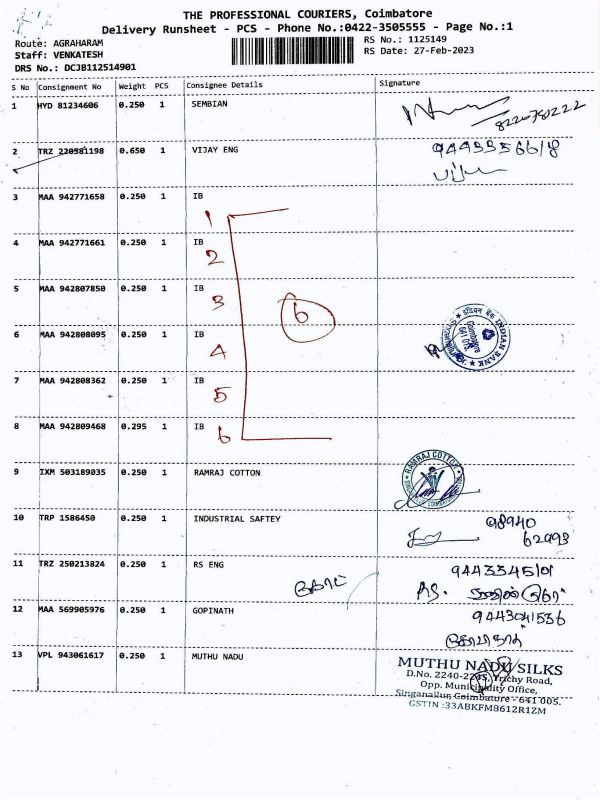 THE PROFESSIONAL COURIERS, Coimbatore
Delivery Runsheet - PCS - Phone No.:0422-3505555 - Page No.:1
Route: AGRAHARAM
Staff: VENKATESH
DRS No.: DCJB112514901
RS No.: 1125149
RS Date: 27-Feb-2023
S No Consignment No Weight PCS Consignee Details Signature
1 HYD 81234606 0.250 1 SEMBIAN
8220781222
2 TRZ 220581198 0.650 1 VIJAY ENG
3 MAA 942771658 0.250 1 IB
1
4 MAA 942771661 0.250 1 IB
2
5 MAA 942807850 0.250 1 IB
3
6
6 MAA 942808095 0.250 1 IB
INDIAN BANK
इंडियन बैंक
Coimbatore
4
7 MAA 942808362 0.250 1 IB
5
8 MAA 942809468 0.295 1 IB
6
9 IXM 503189035 0.250 1 RAMRAJ COTTON
RAMRAJ COTTON
10 TRP 1586450 0.250 1 INDUSTRIAL SAFTEY
98940
62993
11 TRZ 250213824 0.250 1 RS ENG
RS.
12 MAA 569905976 0.250 1 GOPINATH
9443041556
கோபிநாத்
13 VPL 943061617 0.250 1 MUTHU NADU
MUTHU NADU SILKS
D.No. 2240-2205, Trichy Road,
Opp. Municipality Office,
Singanallur, Coimbatore - 641 005.
GSTIN :33ABKFM8612R1ZM